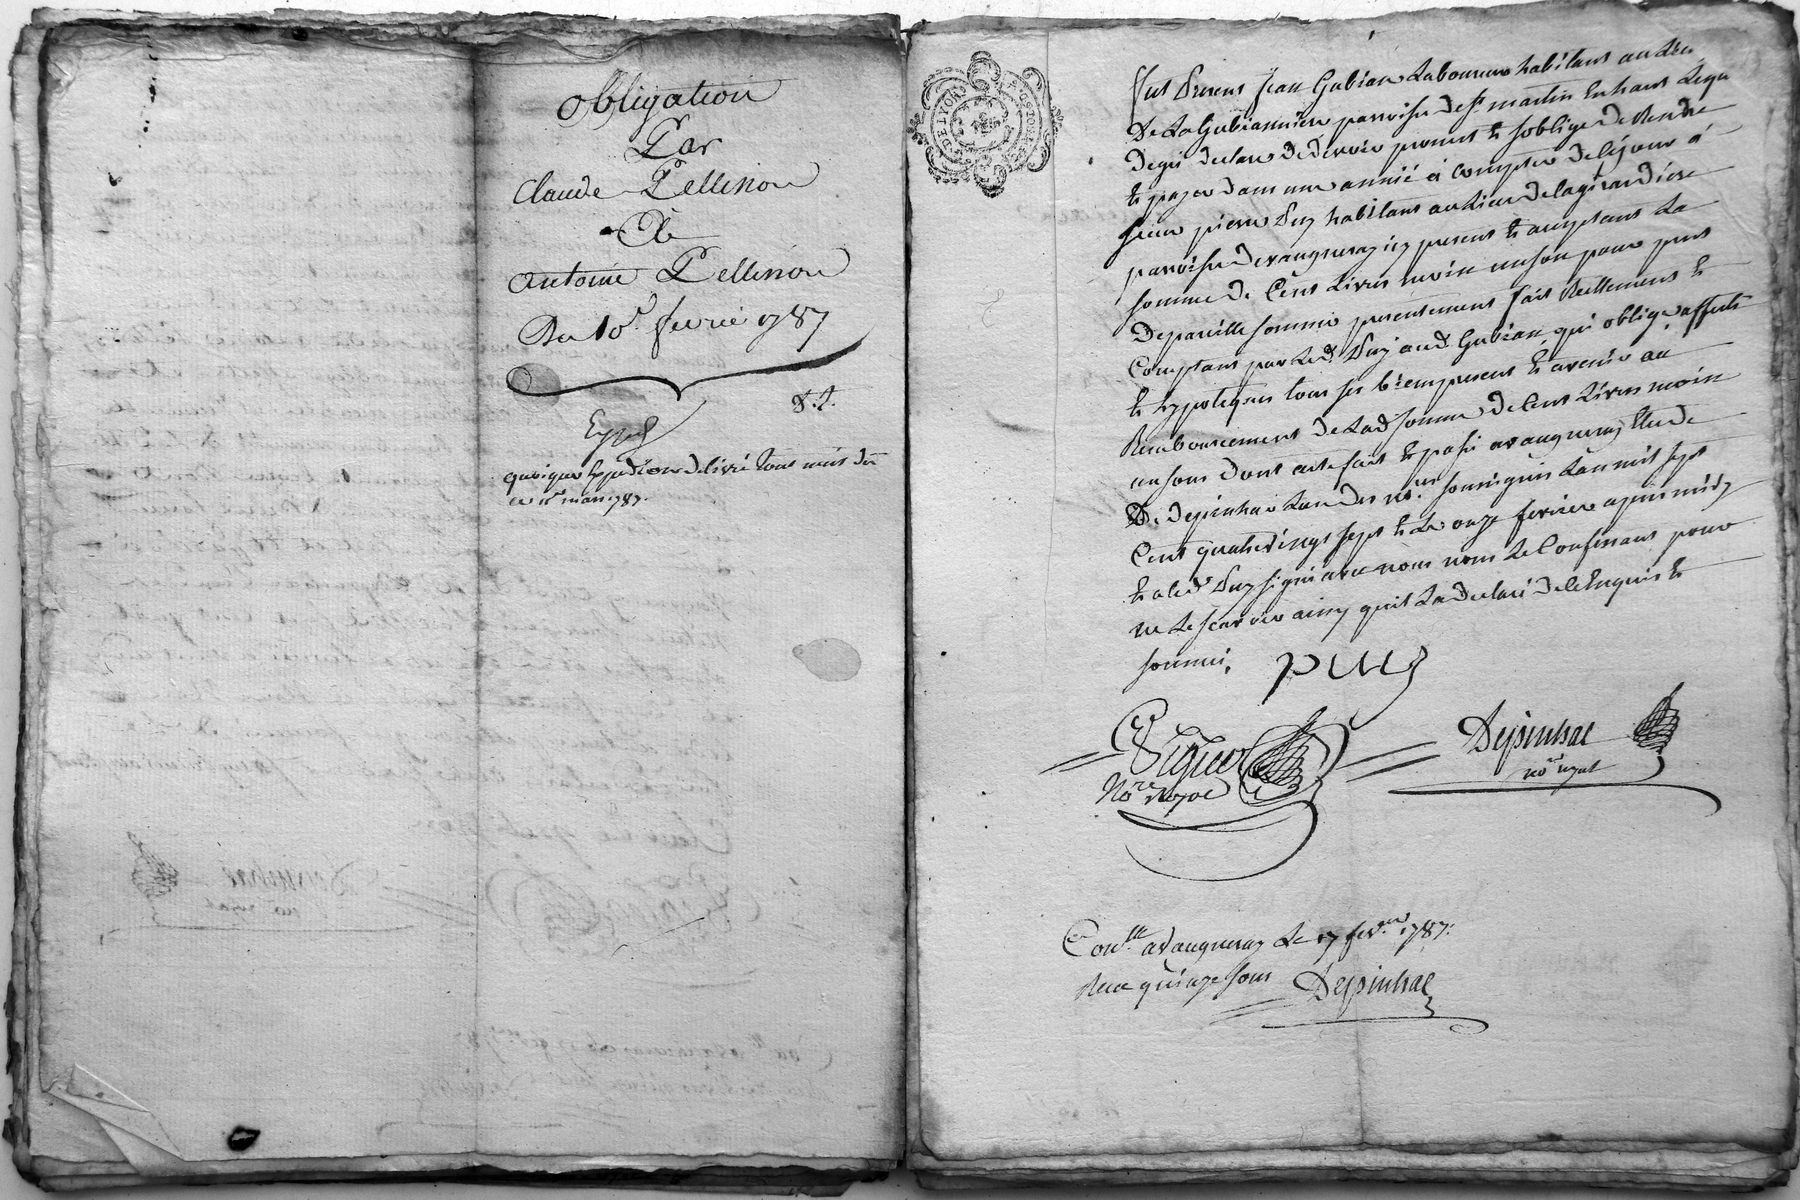 Obligation
Par
Claude Pellisson
&
antoine Pellisson
Du 10e. fevrier 1787
Exped
quoique Expedition delivré
ce mars 1787.
DE LYON
fut Present Jean Gubian Laboureur habitant au Lieu
De La Gubianniere parroisse de st martin En haut Lequel
degré declare devoir promet & s'oblige de Rendre
& payer dans une année à Compter de ce jour à
sieur pierre Puy habitant au Lieu de la girardiere
parroisse de vaugneray icy present & acceptant La
somme de Cent Livres moin un sou pour prest
De pareille somme presentement fait Reellement &
Comptant par Led. Puy aud. Gubian qui oblige affecte
& hypoteque tous ses biens present & avenir au
Remboursement de Lad somme de Cent Livres moin
un sou dont acte fait & passé a vaugneray Etude
De Depinhac L'un des nores. soussignés L'an mil sept
Cent quatrevingt sept & Le onze fevrier apres midy
& a led. Puy signé avec nous non Le Confessant pour
ne Le scavoir ainsy qu'il L'a declaré de ce Enquis &
sommé.
puy
Nore. Royal
Depinhac
nore royal
Conlle. a vaugneray Le 17 fevrier 1787.
Reçu quinze sous Depinhac